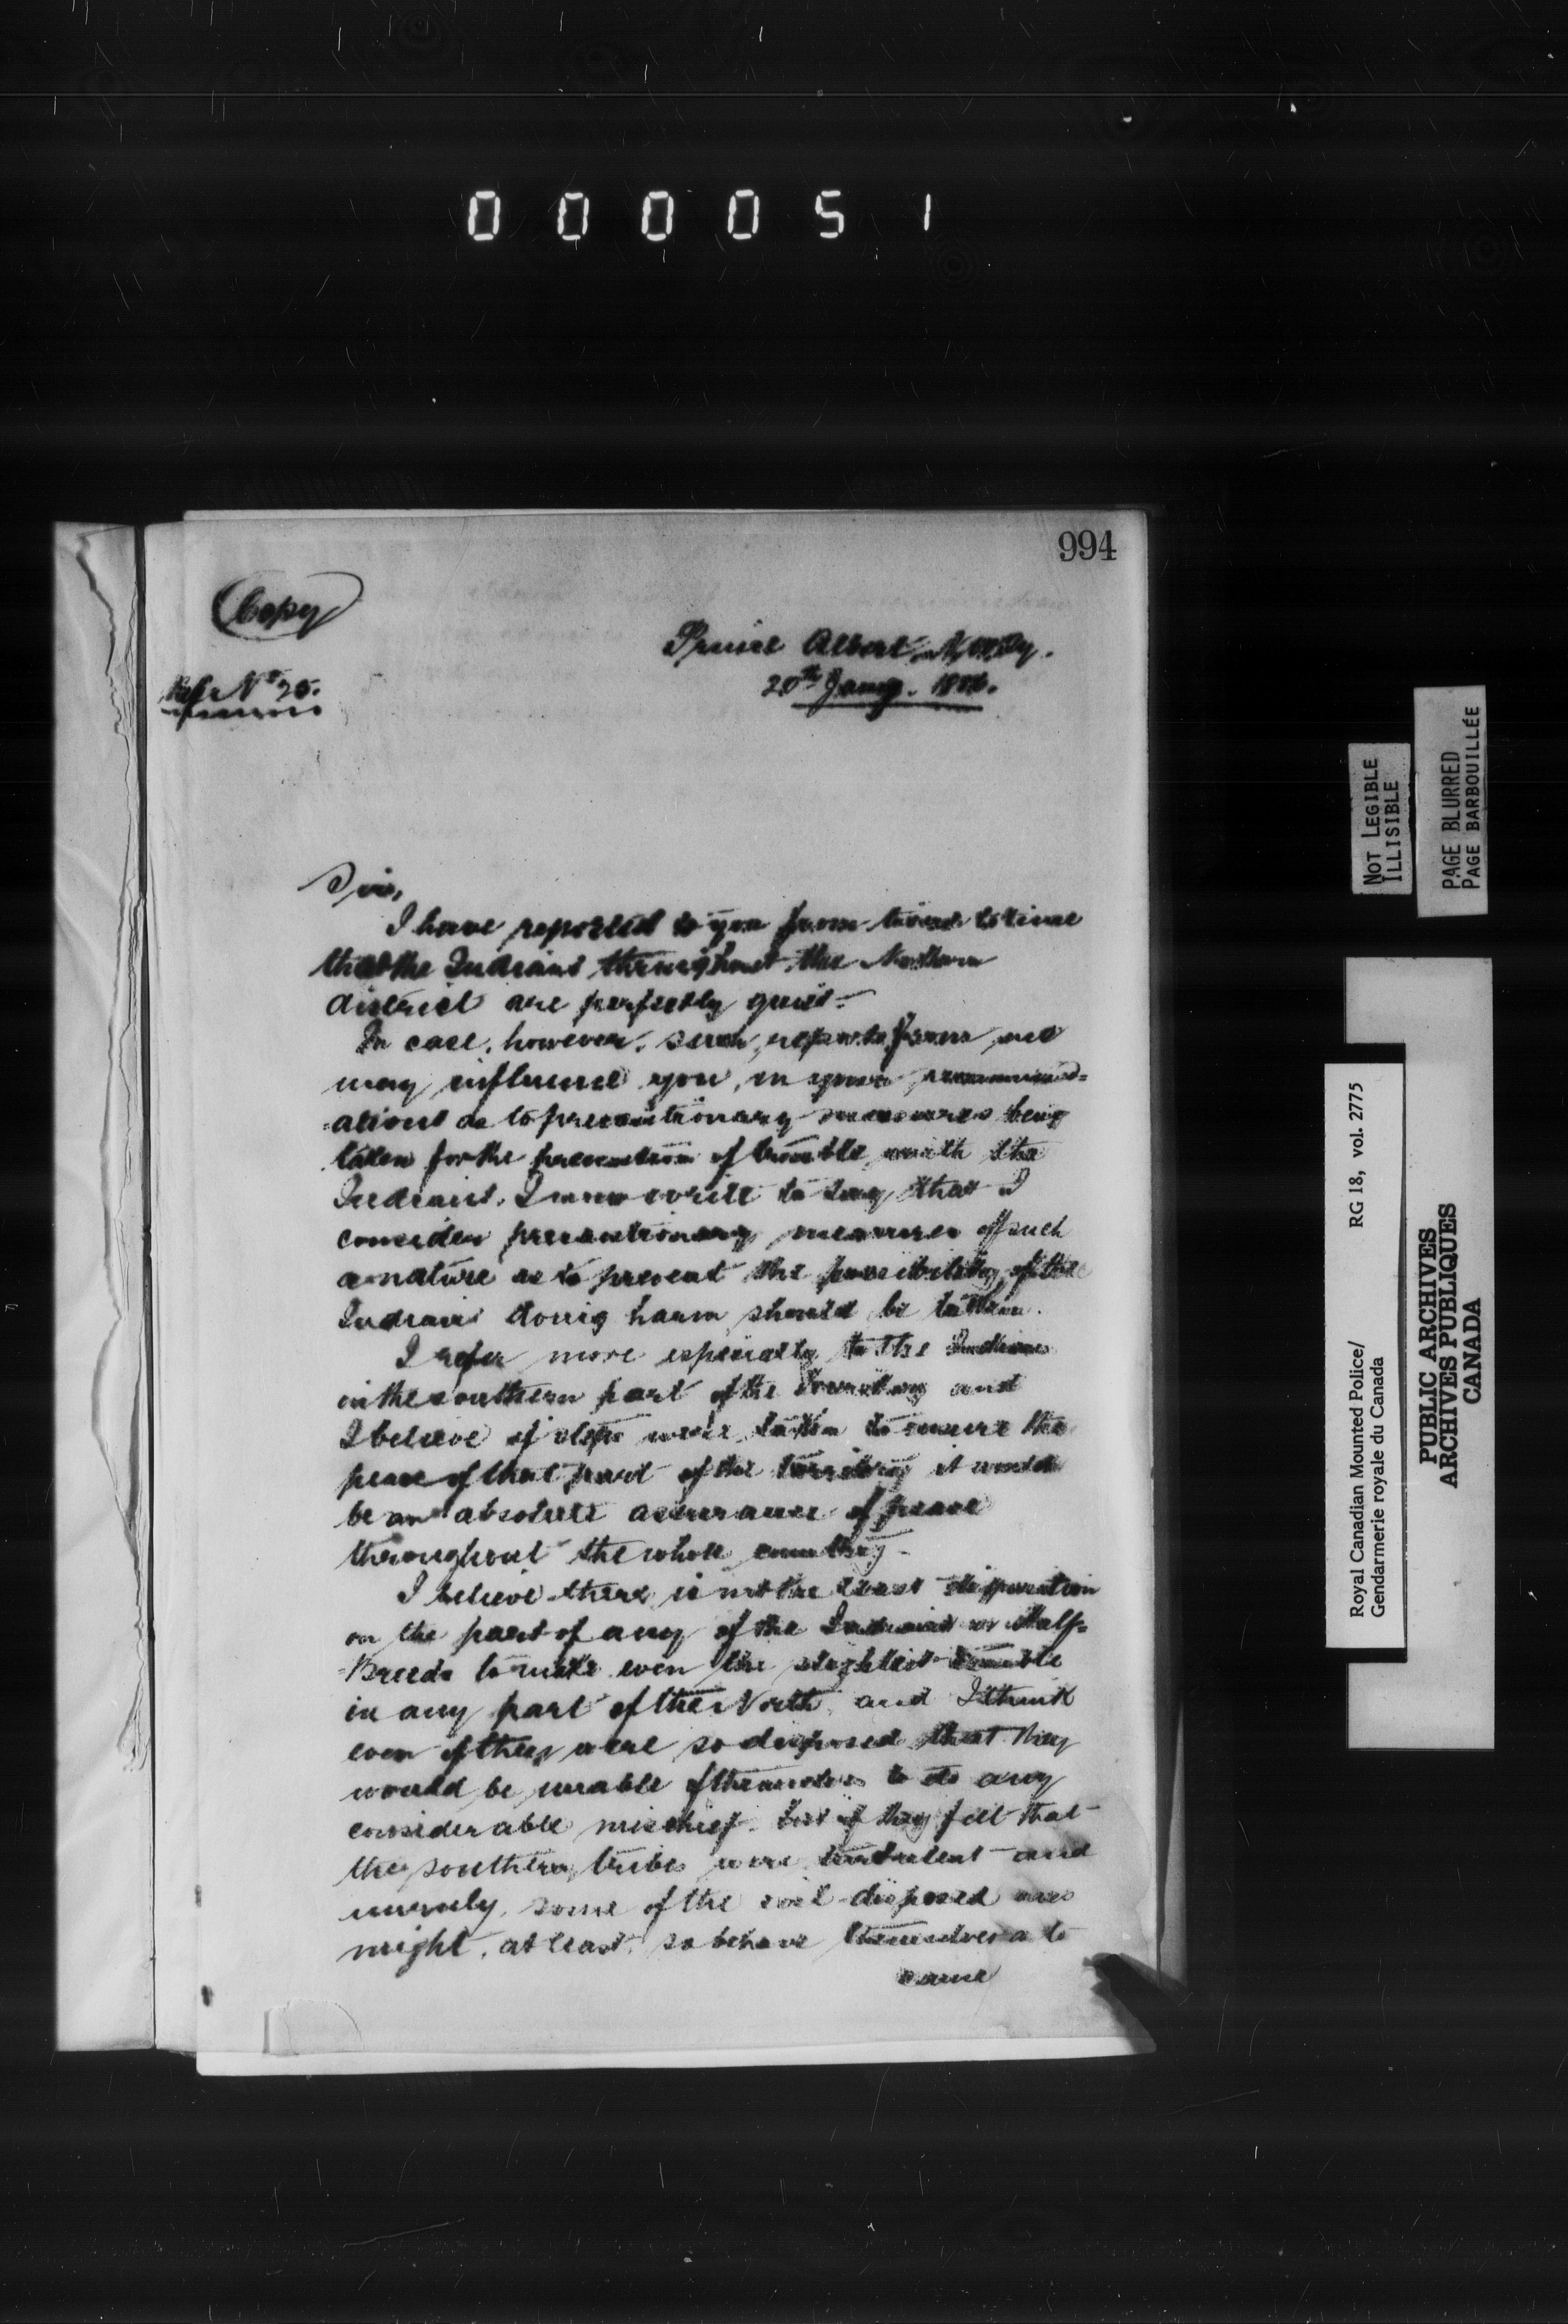 000051
994
Copy
Prince Albert, N.W.Ty.
20th Jany. 1886.
Refce No 25.
Sir,
I have reported to you from time to time
that the Indians throughout the Northern
district are perfectly quiet-
In case, however, such reports from me
may influence you, in your recommend=
=ations as to precautionary measures being
taken for the prevention of trouble with the
Indians. I now write to say that I
consider precautionary measures of such
a nature as to prevent the possibility of the
Indians doing harm should be taken.
I refer more especially to the Indians
in the southern part of the Territory and
I believe if steps were taken to ensure the
peace of that part of the Territory it would
be an absolute assurance of peace
throughout the whole country-
I believe there is not the least disposition
on the part of any of the Indians or Half=
=Breeds to make even the slightest trouble
in any part of the North, and I think
even if they were so disposed that they
would be unable of themselves to do any
considerable mischief. but if they felt that
the southern tribes were turbulent and
unruly, some of the evil-disposed ones
might, at least, so behave themselves as to
cause
NOT LEGIBLE
ILLISIBLE
PAGE BLURRED
PAGE BARBOUILLÉE
Royal Canadian Mounted Police/ RG 18, vol. 2775
Gendarmerie royale du Canada
PUBLIC ARCHIVES
ARCHIVES PUBLIQUES
CANADA